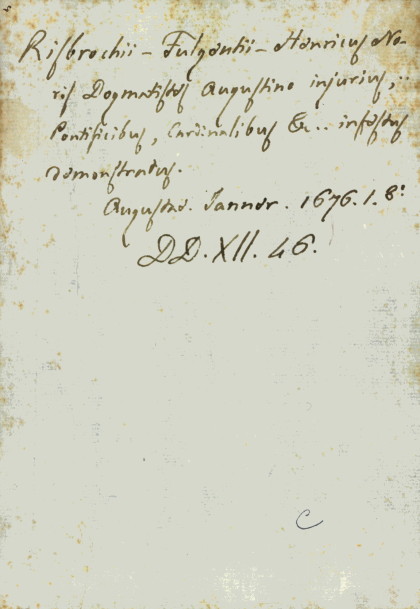 Risbrochii - Fulgentii - Henricus No-
ris Dogmatistes Augustino injurius,
Pontificibus, Cardinalibus &.. infestus
demonstratus.
Augustae. Janner. 1676. 1. 8:
DD. XII. 46.
C